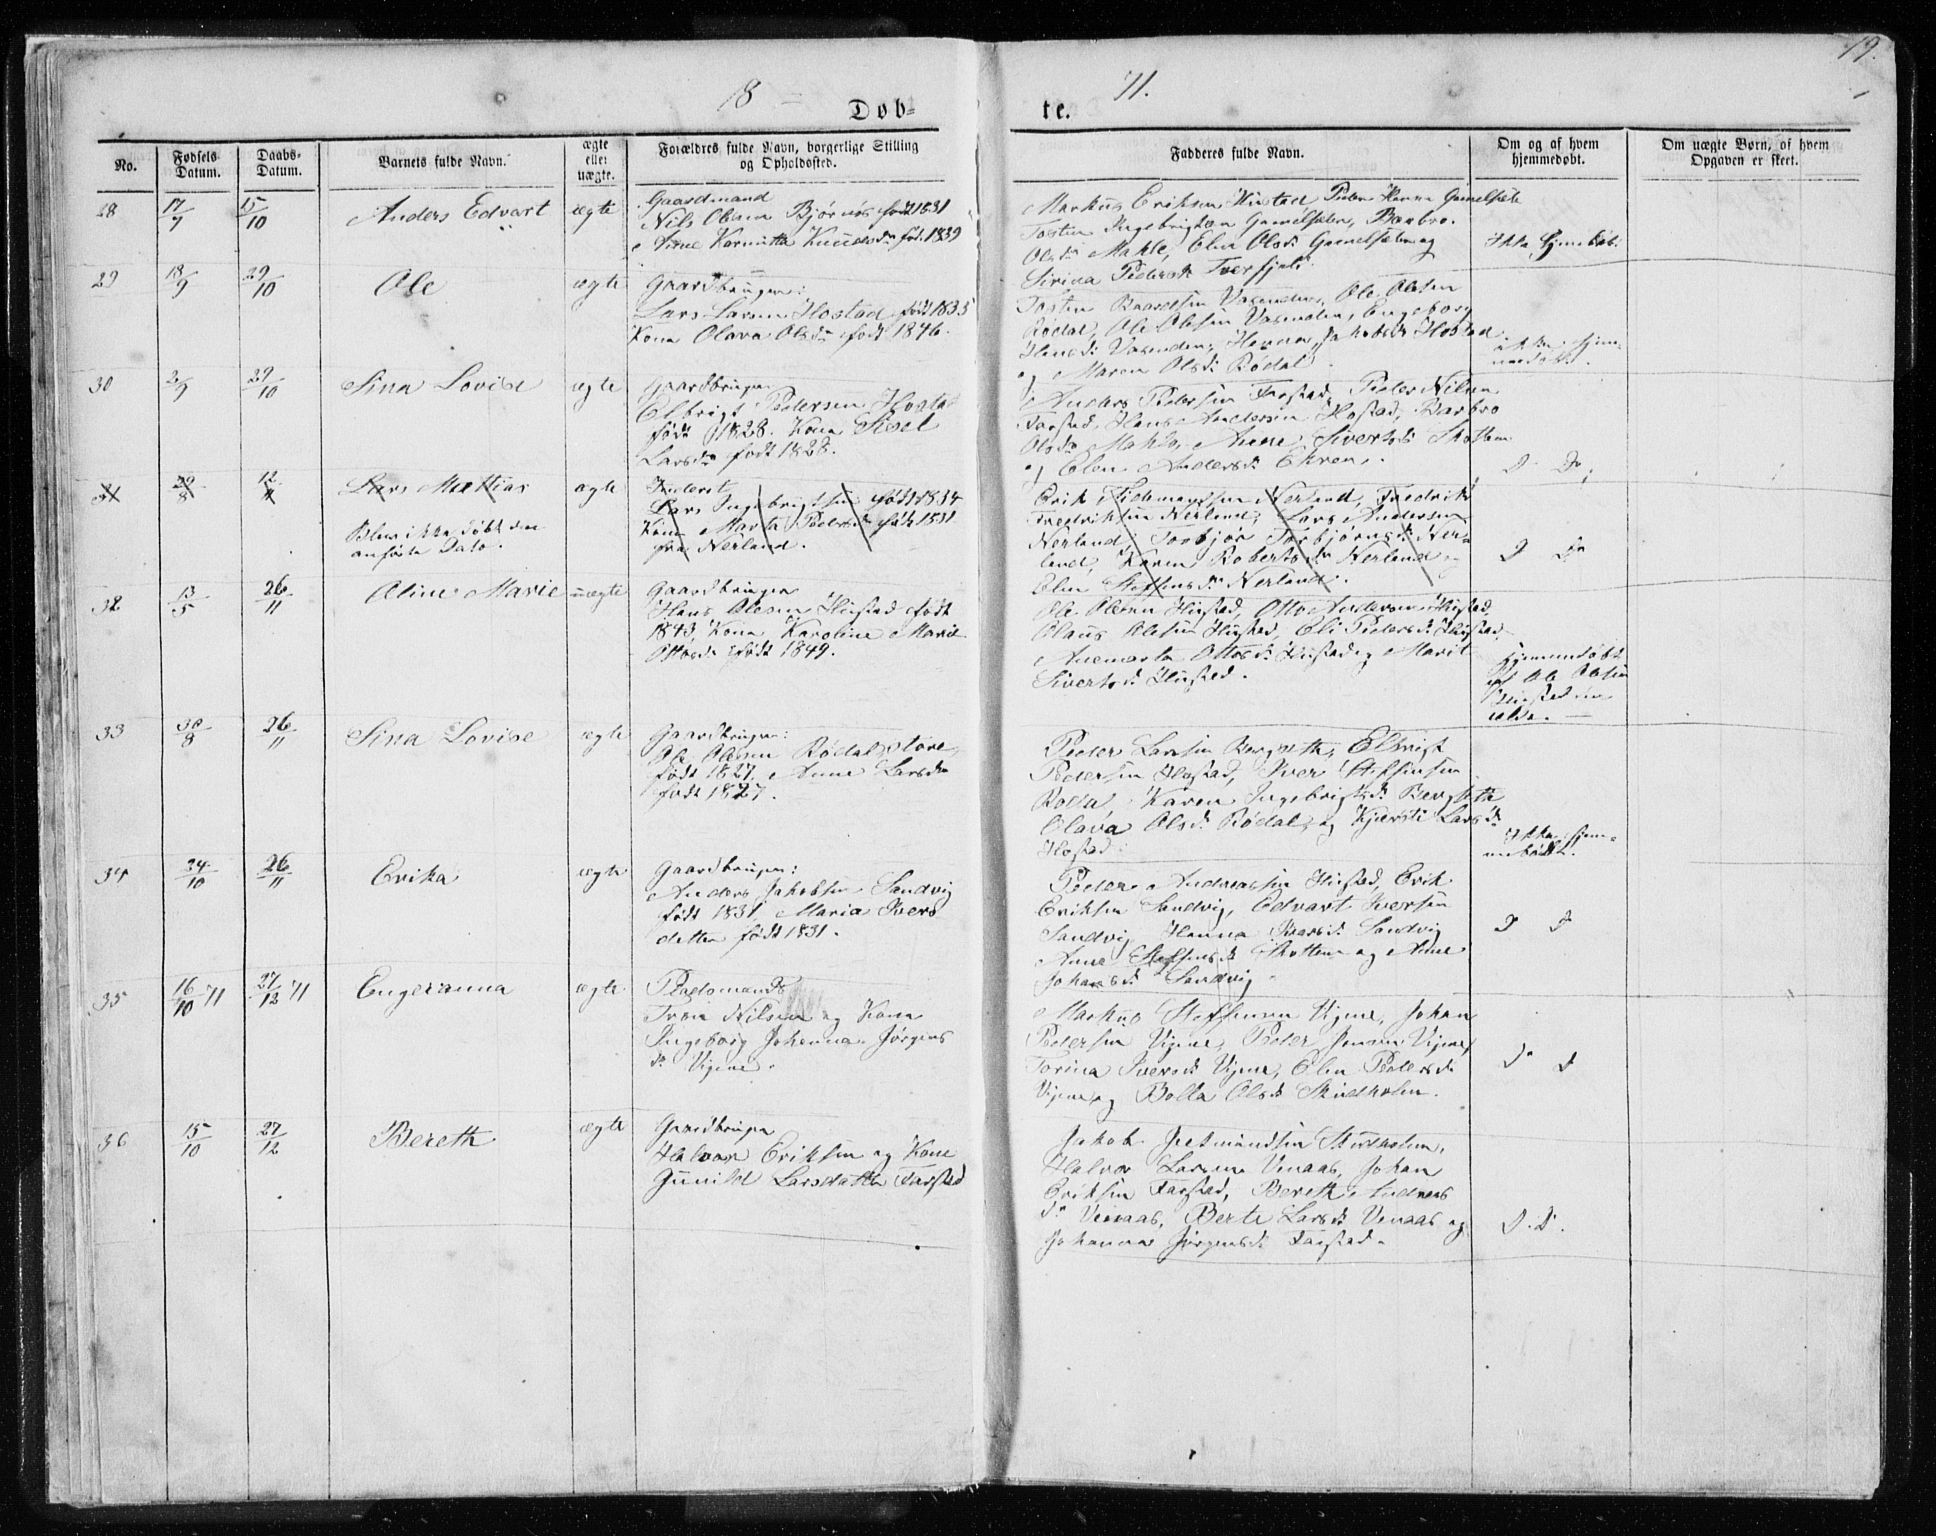 19.
18 — 71.
Døb-
te.
No.
Fødsels-
Datum.
Daabs-
Datum.
Barnets fulde Navn.
ægte
eller
uægte.
Forældres fulde Navn, borgerlige Stilling
og Opholdssted.
Fadderes fulde Navn.
Om og af hvem
hjemmedøbt.
Om uægte Børn, af hvem
Opgaven er skeet.
28 17/7 15/10 Anders Edvart ægte
Gaardmand
Nils Olsen Bjørnøs født 1831
Anne Knudsdr. født 1839
Markus Eriksen Hustad, Peder
Tosten Ingebrigtsen Gamelsæter, Barbro
Olsdr Mahle, Elen Olsdr Gamelsæter og
Sirina Pedersdr Tverfjeld.
Ikke hjemdøbt
29 18/9 29/10 Ole ægte
Gaardbruger:
Lars Larsen Hostad født 1835
Kona Olava Olsdr født 1846.
Tosten Baardsen Vasenden, Ole Olsen
Rødal, Ole Olesen Vasenden, Engeborg
Hansdr Vasenden, Hanna Jakobsdr Hostad
og Maren Olsdr Rødal.
ikke hjem-
medøbt.
30 2/9 29/10 Sina Lovise ægte
Gaardbruger
Elbrigt Pedersen Hostad
født 1828. Kona Sisel
Larsdr født 1828.
Anders Pedersen Farstad, Peder Nilsen
Farstad, Hans Andersen Hostad, Barbro
Olsdr Mahle, Anne Sivertsdr Skotten
og Elen Andersdr Ekren.
Do Do.
31 29/8 12/11 Lars Mattias ægte
Blev ikke døbt den
anførte Dato.
Inderst
Lars Ingebrigtsen født 1834
Kona Marta Pedersdr født 1831
fra Nerland.
Erik Tidemandsen Nerland, Fredrik
Fredriksen Nerland, Lars Andersen
Nerland, Torbjør Torbjørnsdr Ner-
land, Karen Robertsdr Nerland
Elen Steffensdr Nerland.
D Do
32 13/5 26/11 Oline Marie uægte
Gaardbruger
Hans Olesen Hustad født
1843, Kona Karoline Marie
Ottosdr født 1849.
Ole Olesen Hustad, Otto Andersen Hustad,
Olaus Olesen Hustad, Eli Pedersdr Hustad,
Anemarta Ottosdr Hustad og Marit
Sivertsdr Hustad.
Hjemmedøbt
af Ole Olesen
Hustad
33 30/8 26/11 Sina Lovise ægte
Gaardbruger:
Ole Olesen Rødal store
født 1827. Anne Larsdr
født 1827.
Peder Larsen Bergseth, Elbrigt
Pedersen Hostad, Iver Steffensen
Rødal, Karen Ingebrigtsdr Bergseth
Olava Olsdr Rødal, og Kjersti Larsdr
Hostad.
Ikke hjem-
medøbt.
34 24/10 26/11 Erika ægte
Gaardbruger:
Anders Jakobsen Sandvig
født 1831, Maria Ivers
datter født 1831.
Peder Andreassen Hustad, Erik
Eriksen Sandvig, Edvart Iversen
Sandvig, Hanna Iversdr Sandvig
Anne Steffensdr Skotten og Anne
Johansdr Sandvig
D D
35 16/10 71 27/12 71 Engeranna ægte
Pladsmand
Tron Nilsen og Kona
Ingeborg Johanna Jørgens
dr Vigene.
Markus Steffensen Vigene, Johan
Pedersen Vigene, Peder Jonsen Vigene,
Torina Iversdr Vigene, Elen Pedersdr
Vigene og Bolla Olsdr Skudholm.
Do D
36 15/10 27/12 Bereth ægte
Gaardbruger
Halvor Eriksen og Kone
Gunild Larsdatter Farstad
Jakob Skudholm,
Halvor Larsen Venaas, Johan
Eriksen Farstad, Bereth Andreas
dr Venaas, Berte Larsdr Venaas og
Johanna Jørgensdr Farstad.
D. D.